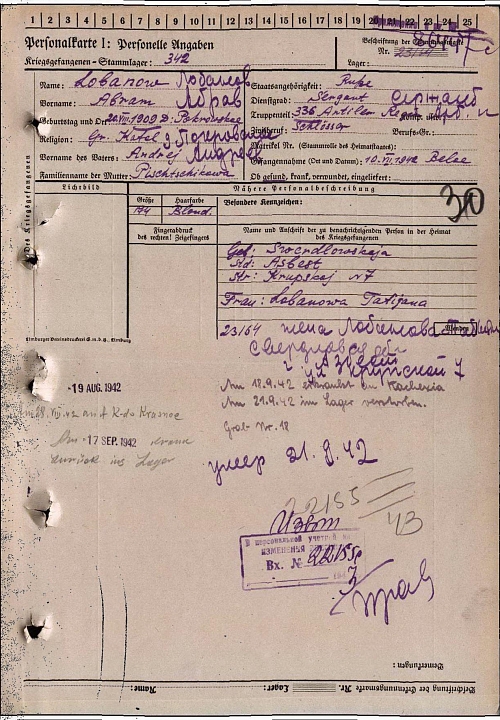 1 2 3 4 5 6 7 8 9 10 11 12 13 14 15 16 17 18 19 20 21 22 23 24 25
Personalkarte I: Personelle Angaben
Kriegsgefangenen-Stammlager: 342
Beschriftung der Erkennungsmarke
Nr.
Lager:
Name: Lobanow Лобанов
Vorname: Abram Абрам
Geburtstag und -Ort: 1909 D. Pokrowskoe
Religion: Gr. Katol д Покровское
Vorname des Vaters: Andrej Андрей
Familienname der Mutter: Pischtschikowa
Staatsangehörigkeit: Russe
Dienstgrad: Sergant Сержант
Truppenteil: 336 Artiller. Reg. Арт. п
Zivilberuf: Schlosser Berufs-Gr.:
Matrikel Nr. (Stammrolle des Heimatstaates):
Gefangennahme (Ort und Datum): 10.VII.1942 Belee
Ob gesund, krank, verwundet, eingeliefert:
30
Des Kriegsgefangenen
Lichtbild
Nähere Personalbeschreibung
Größe Haarfarbe
174 Blond.
Besondere Kennzeichen:
Fingerabdruck
des rechten! Zeigefingers
Name und Anschrift der zu benachrichtigenden Person in der Heimat
des Kriegsgefangenen
Geb: Swerdlowskaja
Std: Asbest
Str: Krupskoj N 7
Frau: Lobanowa Tatijana
23/64 жена Лобанова
Свердлов обл
г Азбест
ул Крупской 7
Limburger Vereinsdruckerei G.m.b.H., Limburg
-19 AUG. 1942
Am 28.VIII.42 auf Kdo Krasnoe
Am -17 SEP. 1942 krank
zurück ins Lager
Am 18.9.42 erkrankt an Kachexia
Am 21.9.42 im Lager verstorben.
Grab Nr. 18
умер 21.9.42
22155
43
Извещ
В персональный учет
ИЗМЕНЕНИЯ
Вх. № 22155
194
Bemerkungen:
Beschriftung der Erkennungsmarke Nr. Lager: Name: